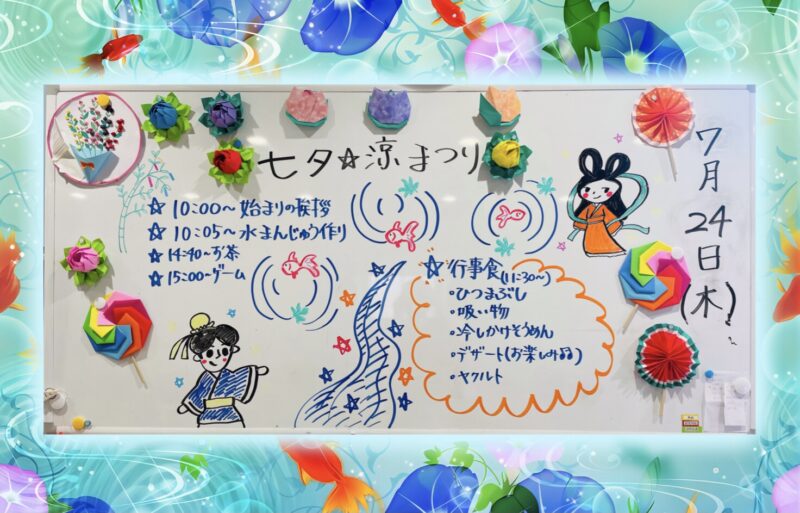 七夕☆涼まつり
7月24日(木)
☆10:00〜始まりの挨拶
☆10:05〜水まんじゅう作り
☆14:40〜お茶
☆15:00〜ゲーム
☆行事食(11:30〜)
・ひつまぶし
・吸い物
・冷しかけそうめん
・デザート(お楽しみ品)
・ヤクルト